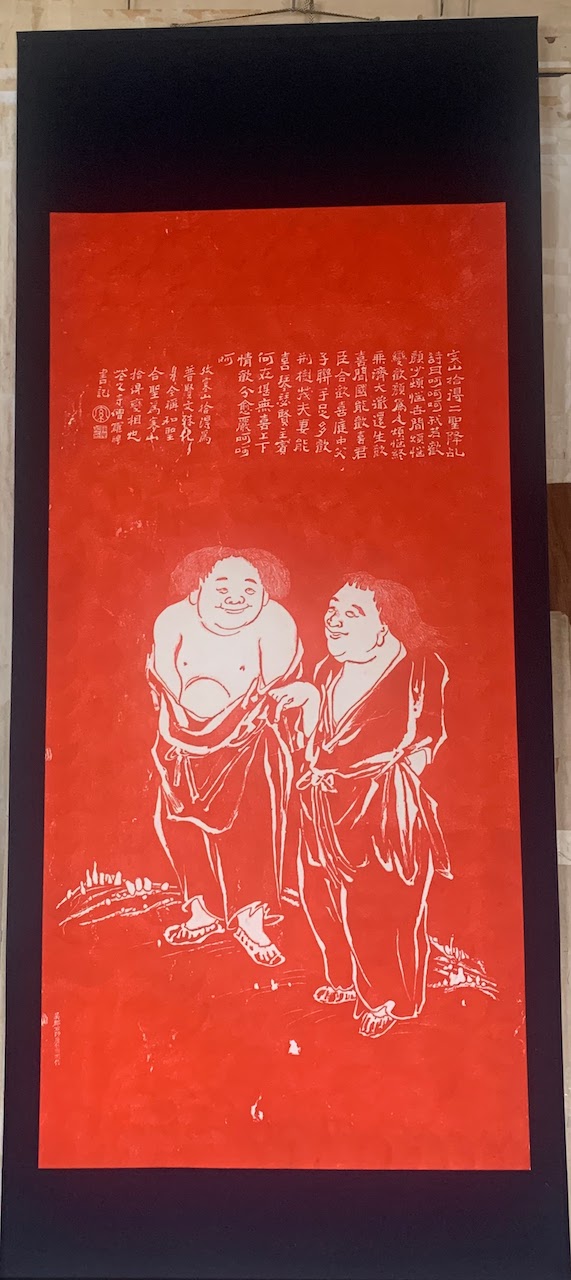 寒山拾得二聖降乩
詩曰呵呵呵我若歡
顏少煩惱世間煩惱
變歡顏為人煩惱終
無濟大道還生歡
喜間國能歡喜君
臣合歡喜庭中父
子聯手足多歡
荊樹茂夫妻能
喜琴瑟賢主賓
何在堪無喜上下
情歡分愈嚴呵呵
呵
考寒山拾得為
普賢文殊化
身今稱和聖
合聖為寒山
拾得變相也
花之寺僧羅聘
書記